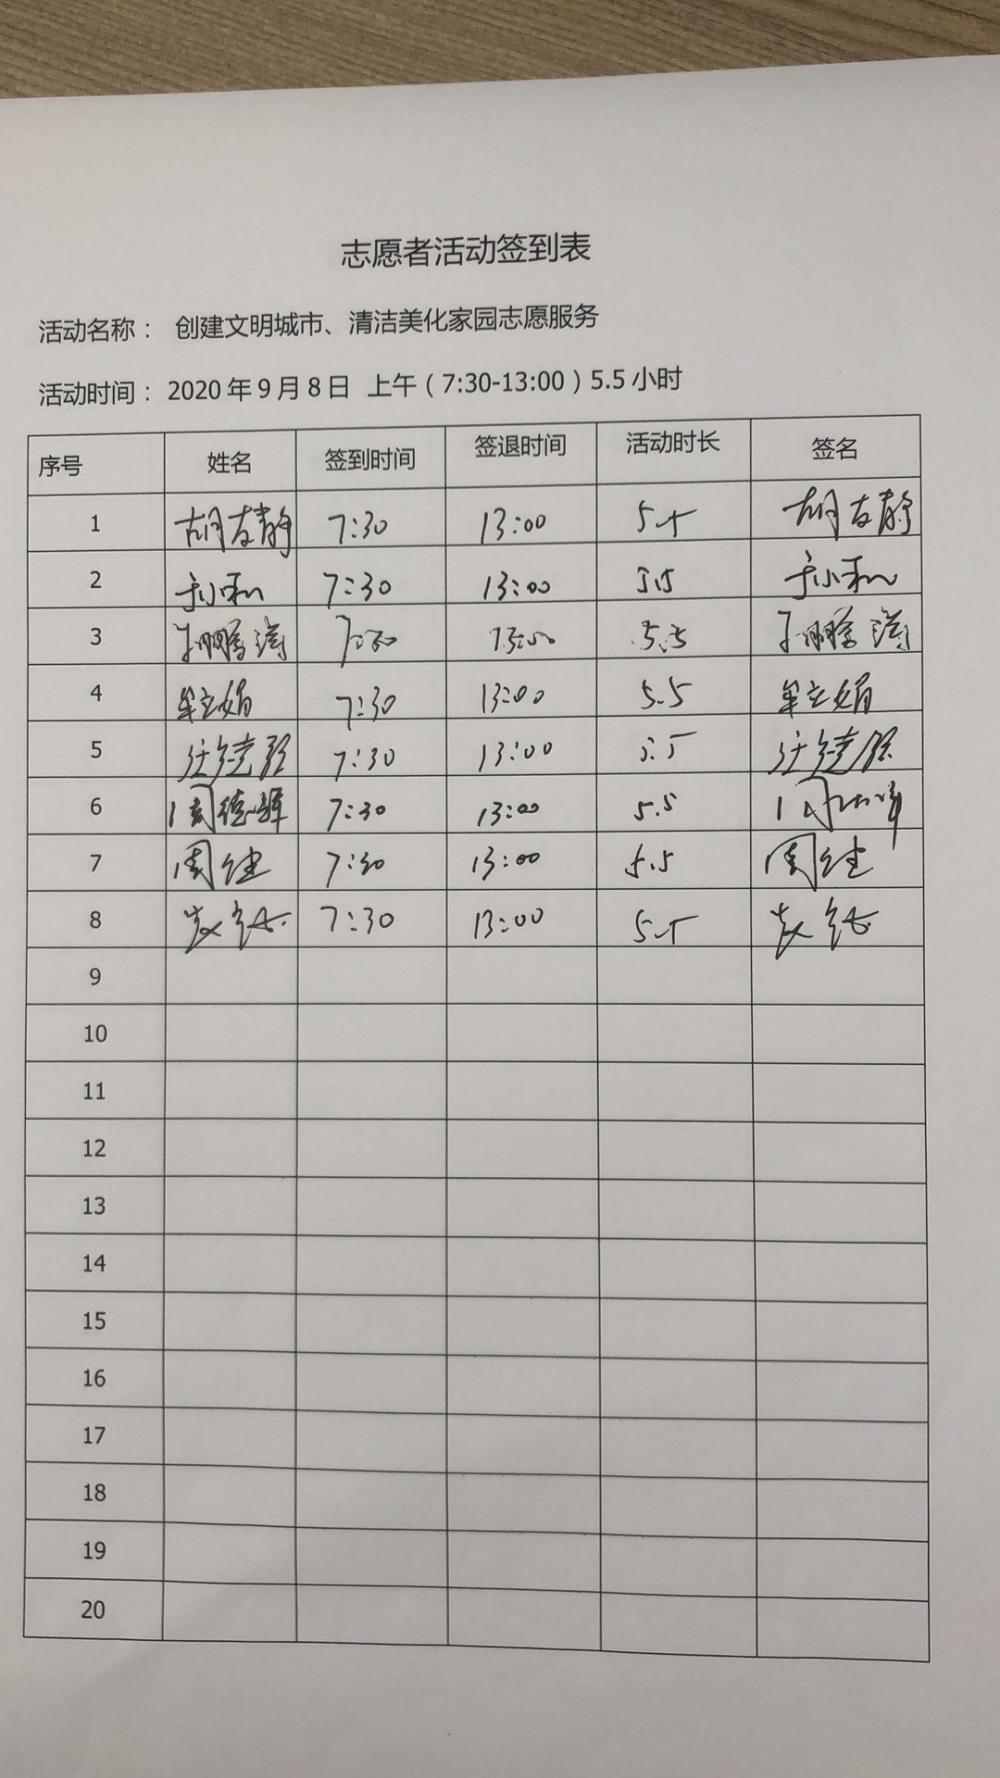 志愿者活动签到表
活动名称： 创建文明城市、清洁美化家园志愿服务
活动时间： 2020年9月8日 上午（7:30-13:00）5.5小时
序号 姓名 签到时间 签退时间 活动时长 签名
1 胡友静 7:30 13:00 5.5 胡友静
2 孙和 7:30 13:00 5.5 孙和
3 7:30 13:00 5.5
4 牟立娟 7:30 13:00 5.5 牟立娟
5 7:30 13:00 5.5
6 周德辉 7:30 13:00 5.5 周
7 周健 7:30 13:00 5.5 周健
8 7:30 13:00 5.5
9
10
11
12
13
14
15
16
17
18
19
20